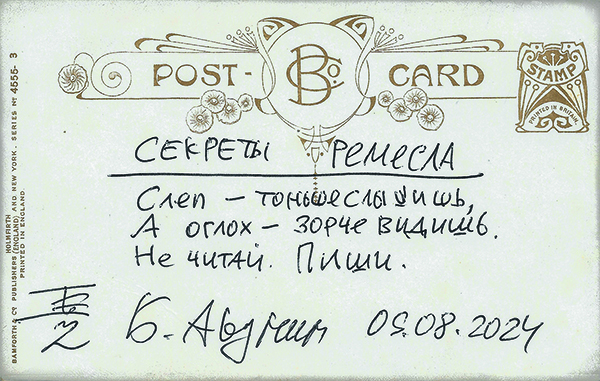 POST-CARD
BCo.
STAMP
PRINTED IN BRITAIN.
СЕКРЕТЫ РЕМЕСЛА
Слеп – тоньше слышишь,
А оглох – зорче видишь.
Не читай. Пиши.
Б. 09.08.2024
2
BAMFORTH & Co. PUBLISHERS (ENGLAND) AND NEW YORK. SERIES No 4555-3
HOLMFIRTH
PRINTED IN ENGLAND